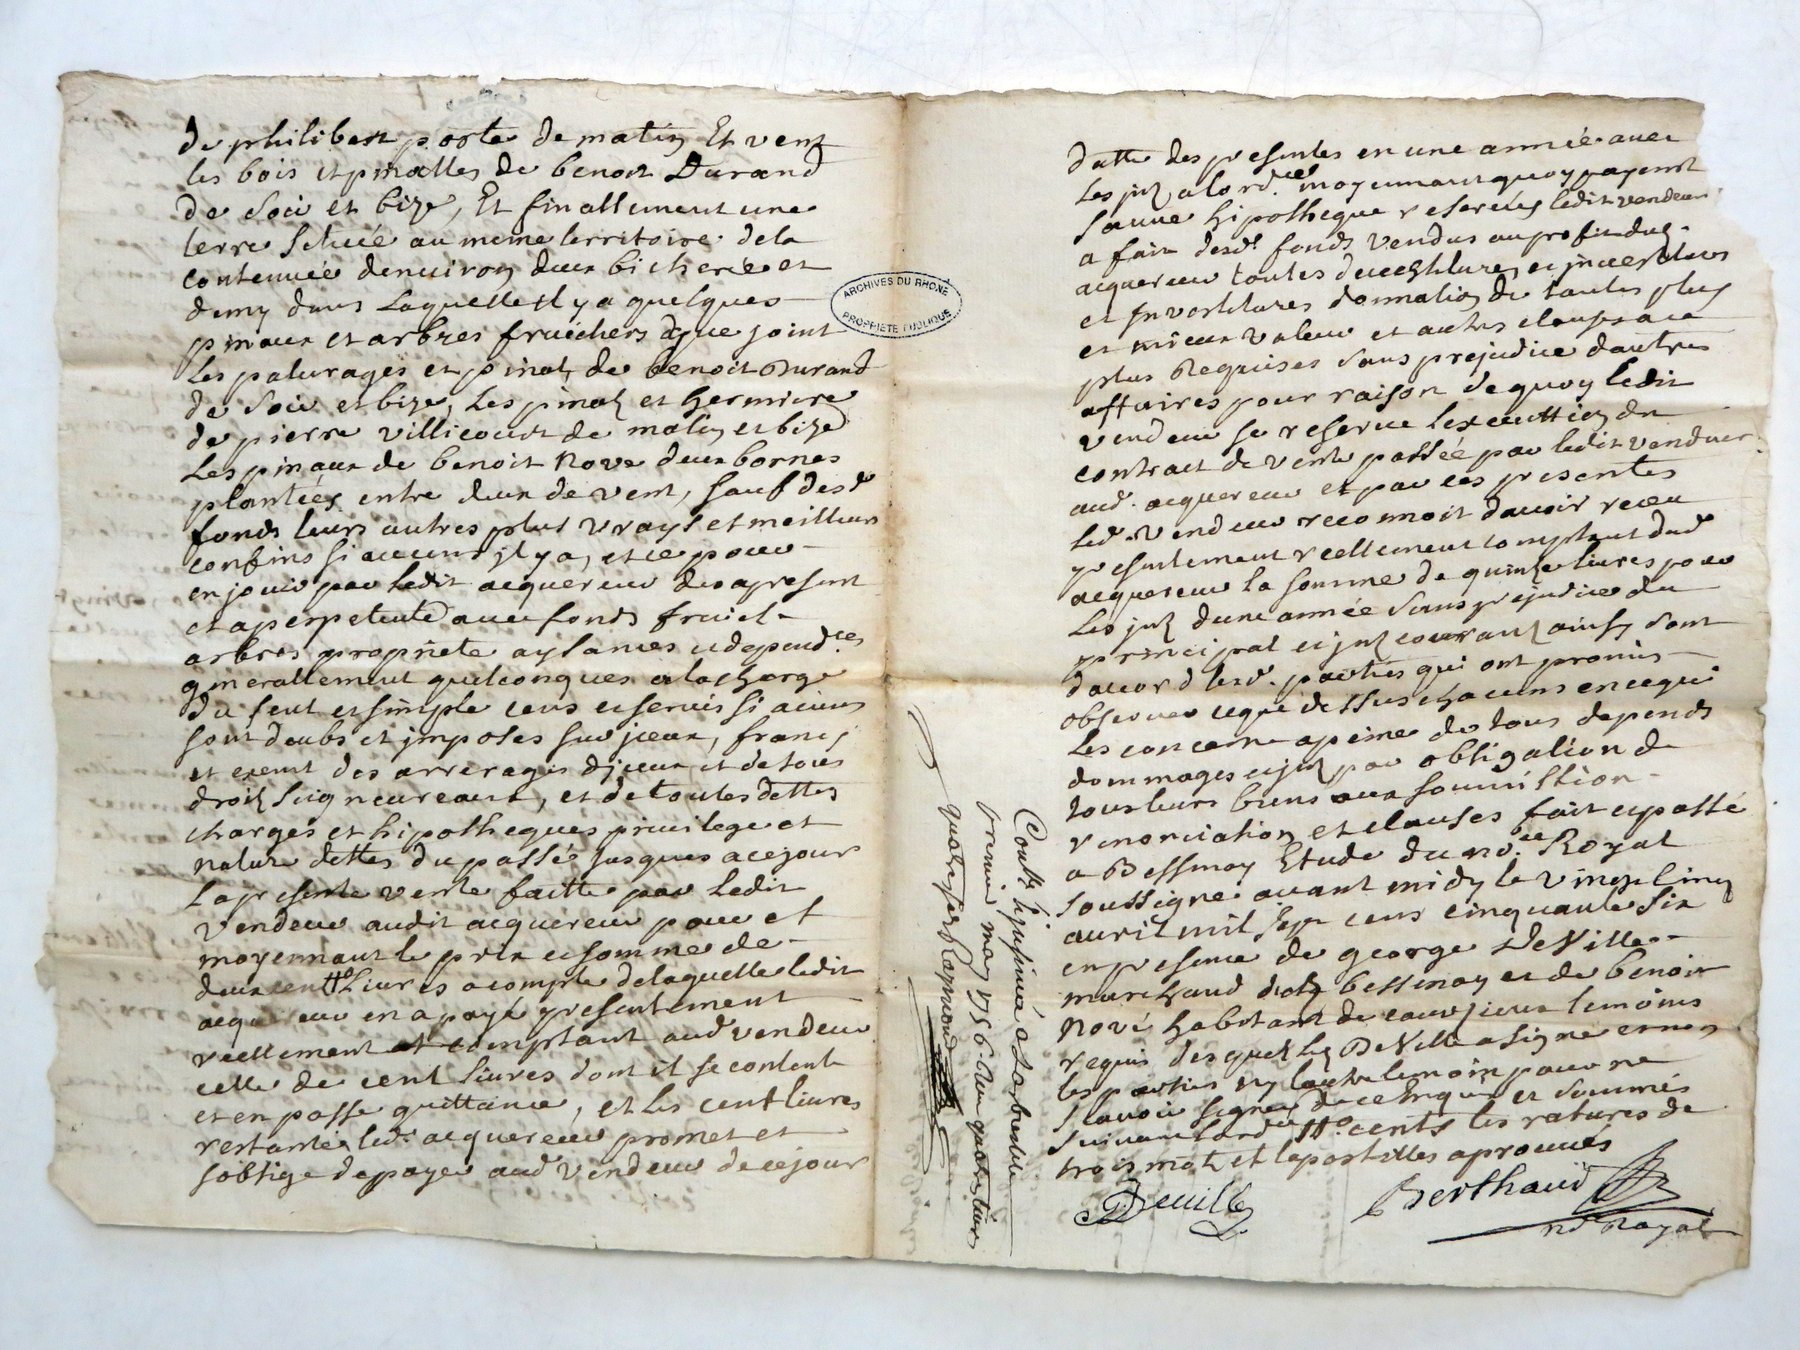 de philibert porte de matin Et vent
les bois et pinattes de benoit Durand
de soir et bize, Et finallement une
terre scituée au meme territoire de la
contenuée denuiron deux bicherée et
demy dans Laquelle il y a quelques
pinaux et arbres fruichers que joint
Les paturages et pinat de benoit Durand
de soir et bize, Les pinatz et hermire
de pierre villicourt de matin et bize
Les pinaux de benoit Nove deux bornes
plantées entre deux de vent, sauf desd
fonds leurs autres plus vrays et meilleurs
confins si aucuns il y a, et ce pour
en jouir par ledit acquereur des apresent
et aperpetuité avec fonds fruict
arbres propriete aysances et depend.ces
generallement quelconques a la charge
du seul et simple cens et servis si aucuns
sont deubs et imposes sur iceux, francs
et exempt des arrerages diceux et de tous
droitz seigneureaux, et de toutes dettes
charges et hipotheques privilege et
nature dettes du passé jusques a ce jour
La presente vente faitte par Ledit
vendeur audit acquereur pour et
moyennant le prix et somme de
deux cent Livres acompte de laquelle ledit
acquereur en a payé presentement
reellement et comptant aud vendeur
celle de cent livres dont il se contente
et en passe quittance, et les cent livres
restantes led. acquereur promet et
s'oblige de payer aud vendeur de ce jour
ARCHIVES DU RHONE
PROPRIÉTÉ PUBLIQUE
datte des presentes en une année avec
Les jnt a lord.ce moyennant quoy payemt
sauve hipotheque reservés ledit vendeur
a fait desd. fonds vendus au profit dud.
acquereur toutes devestitures
et jnvestitures donnation de toutes plus
et mieux valeur et autres clauses a ce
plus Requises sans prejudice dautres
affaires pour raison de quoy ledit
vendeur se reserve lexecuttion du
contract de vente passée par ledit vendeur
aud. acquereur et par ces presentes
Led. vendeur reconnoit davoir receu
presentement reellement comptant dud
acquereur la somme de quinze livres pour
Les jnt dune année sans prejudice du
principal et jnt courant ainsy sont
daccord lesd. parties qui ont promis
observer ce que dessus chacuns en ce qui
Les concerne a peine de tous depends
dommages et jnt par obligation de
tous leurs biens aux soumission
renonciation et clauses fait et passé
a Bessenay Etude du no.re Royal
soussigné avant midy le vingt cinq
auril mil sept cens cinquante six
en presence de george Deville
marchand dud bessenay et de benoit
Nové habitant de temoins
requis desquels Deville a signé et non
les parties ny lautre temoin pour ne
scavoir signer de ce Enquis et sommés
suivant lord.ce cents les ratures de
trois mots et lapostilles aprouvés
Deville
Berthaud
no.re Royal
Contlé et jnsinué a Larbresle
premier may 1756 Reçu quatre livres
quatre sols